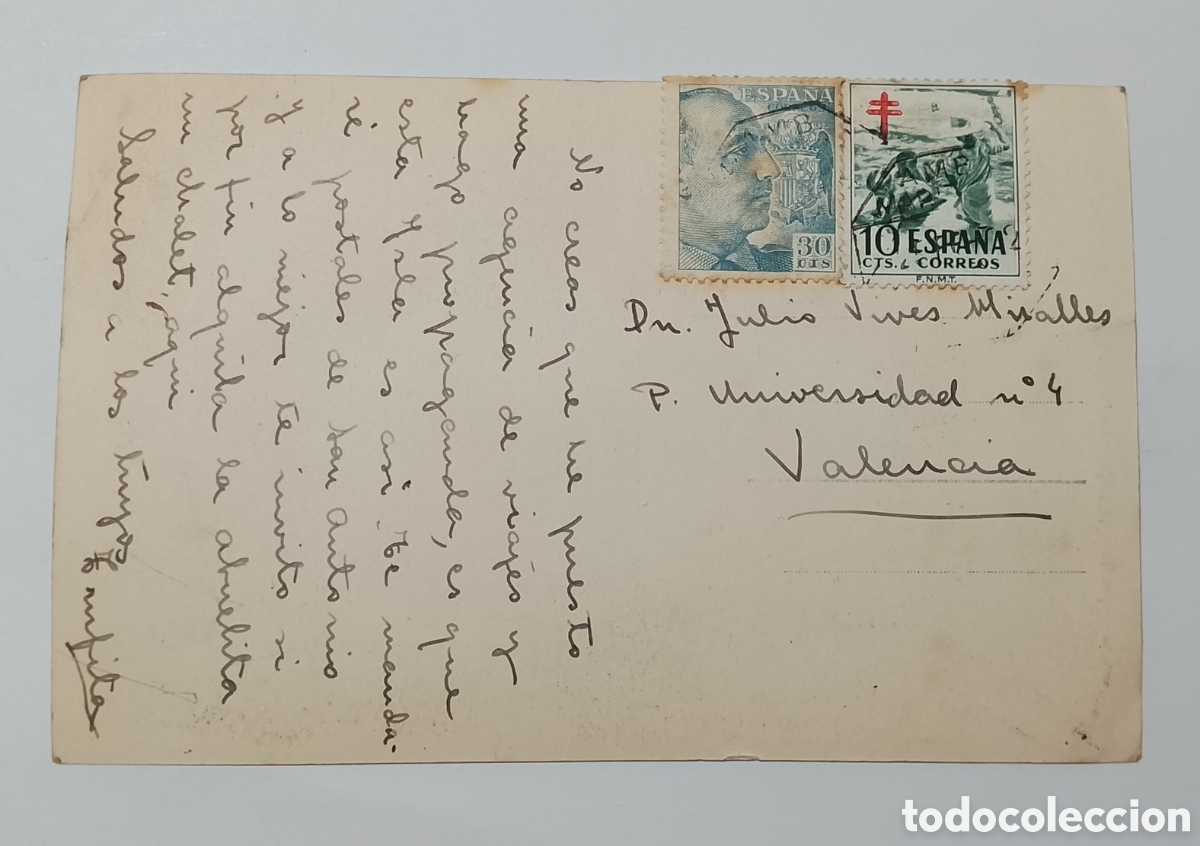 No creas que he puesto
una agencia de viajes y
hago propaganda, es que
esta Ysla es asi. Te manda-
ré postales de San Antonio
y a lo mejor te invito si
por fin alquila la abuelita
mi chalet, aqui
Saludos a los tuyos
ESPAÑA
CORREOS
30
CTS
10 ESPAÑA
CTS. CORREOS
F.N.M.T.
Dn. Julio Vives Miralles
P. Universidad nº 4
Valencia
todocoleccion